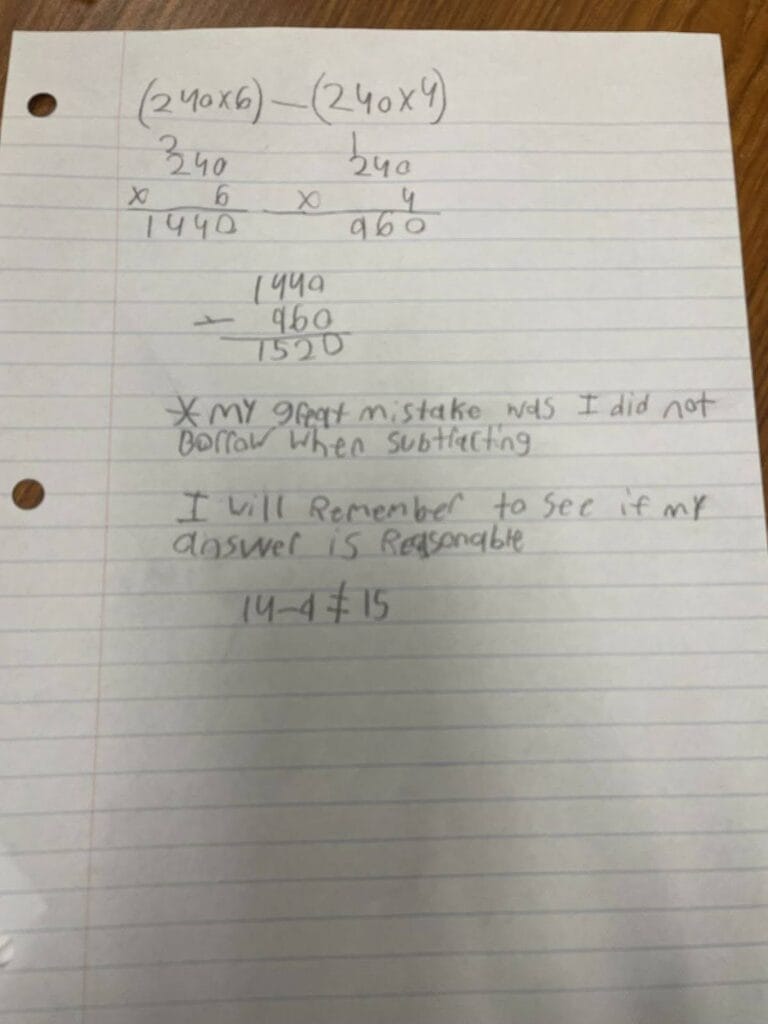 (240x6) — (240x4)
2 1
240 240
x 6 x 4
1440 960
1440
- 960
1520
* my great mistake was I did not
Borrow when subtracting
I will Remember to see if my
answer is Reasonable
14-9 ≠ 15